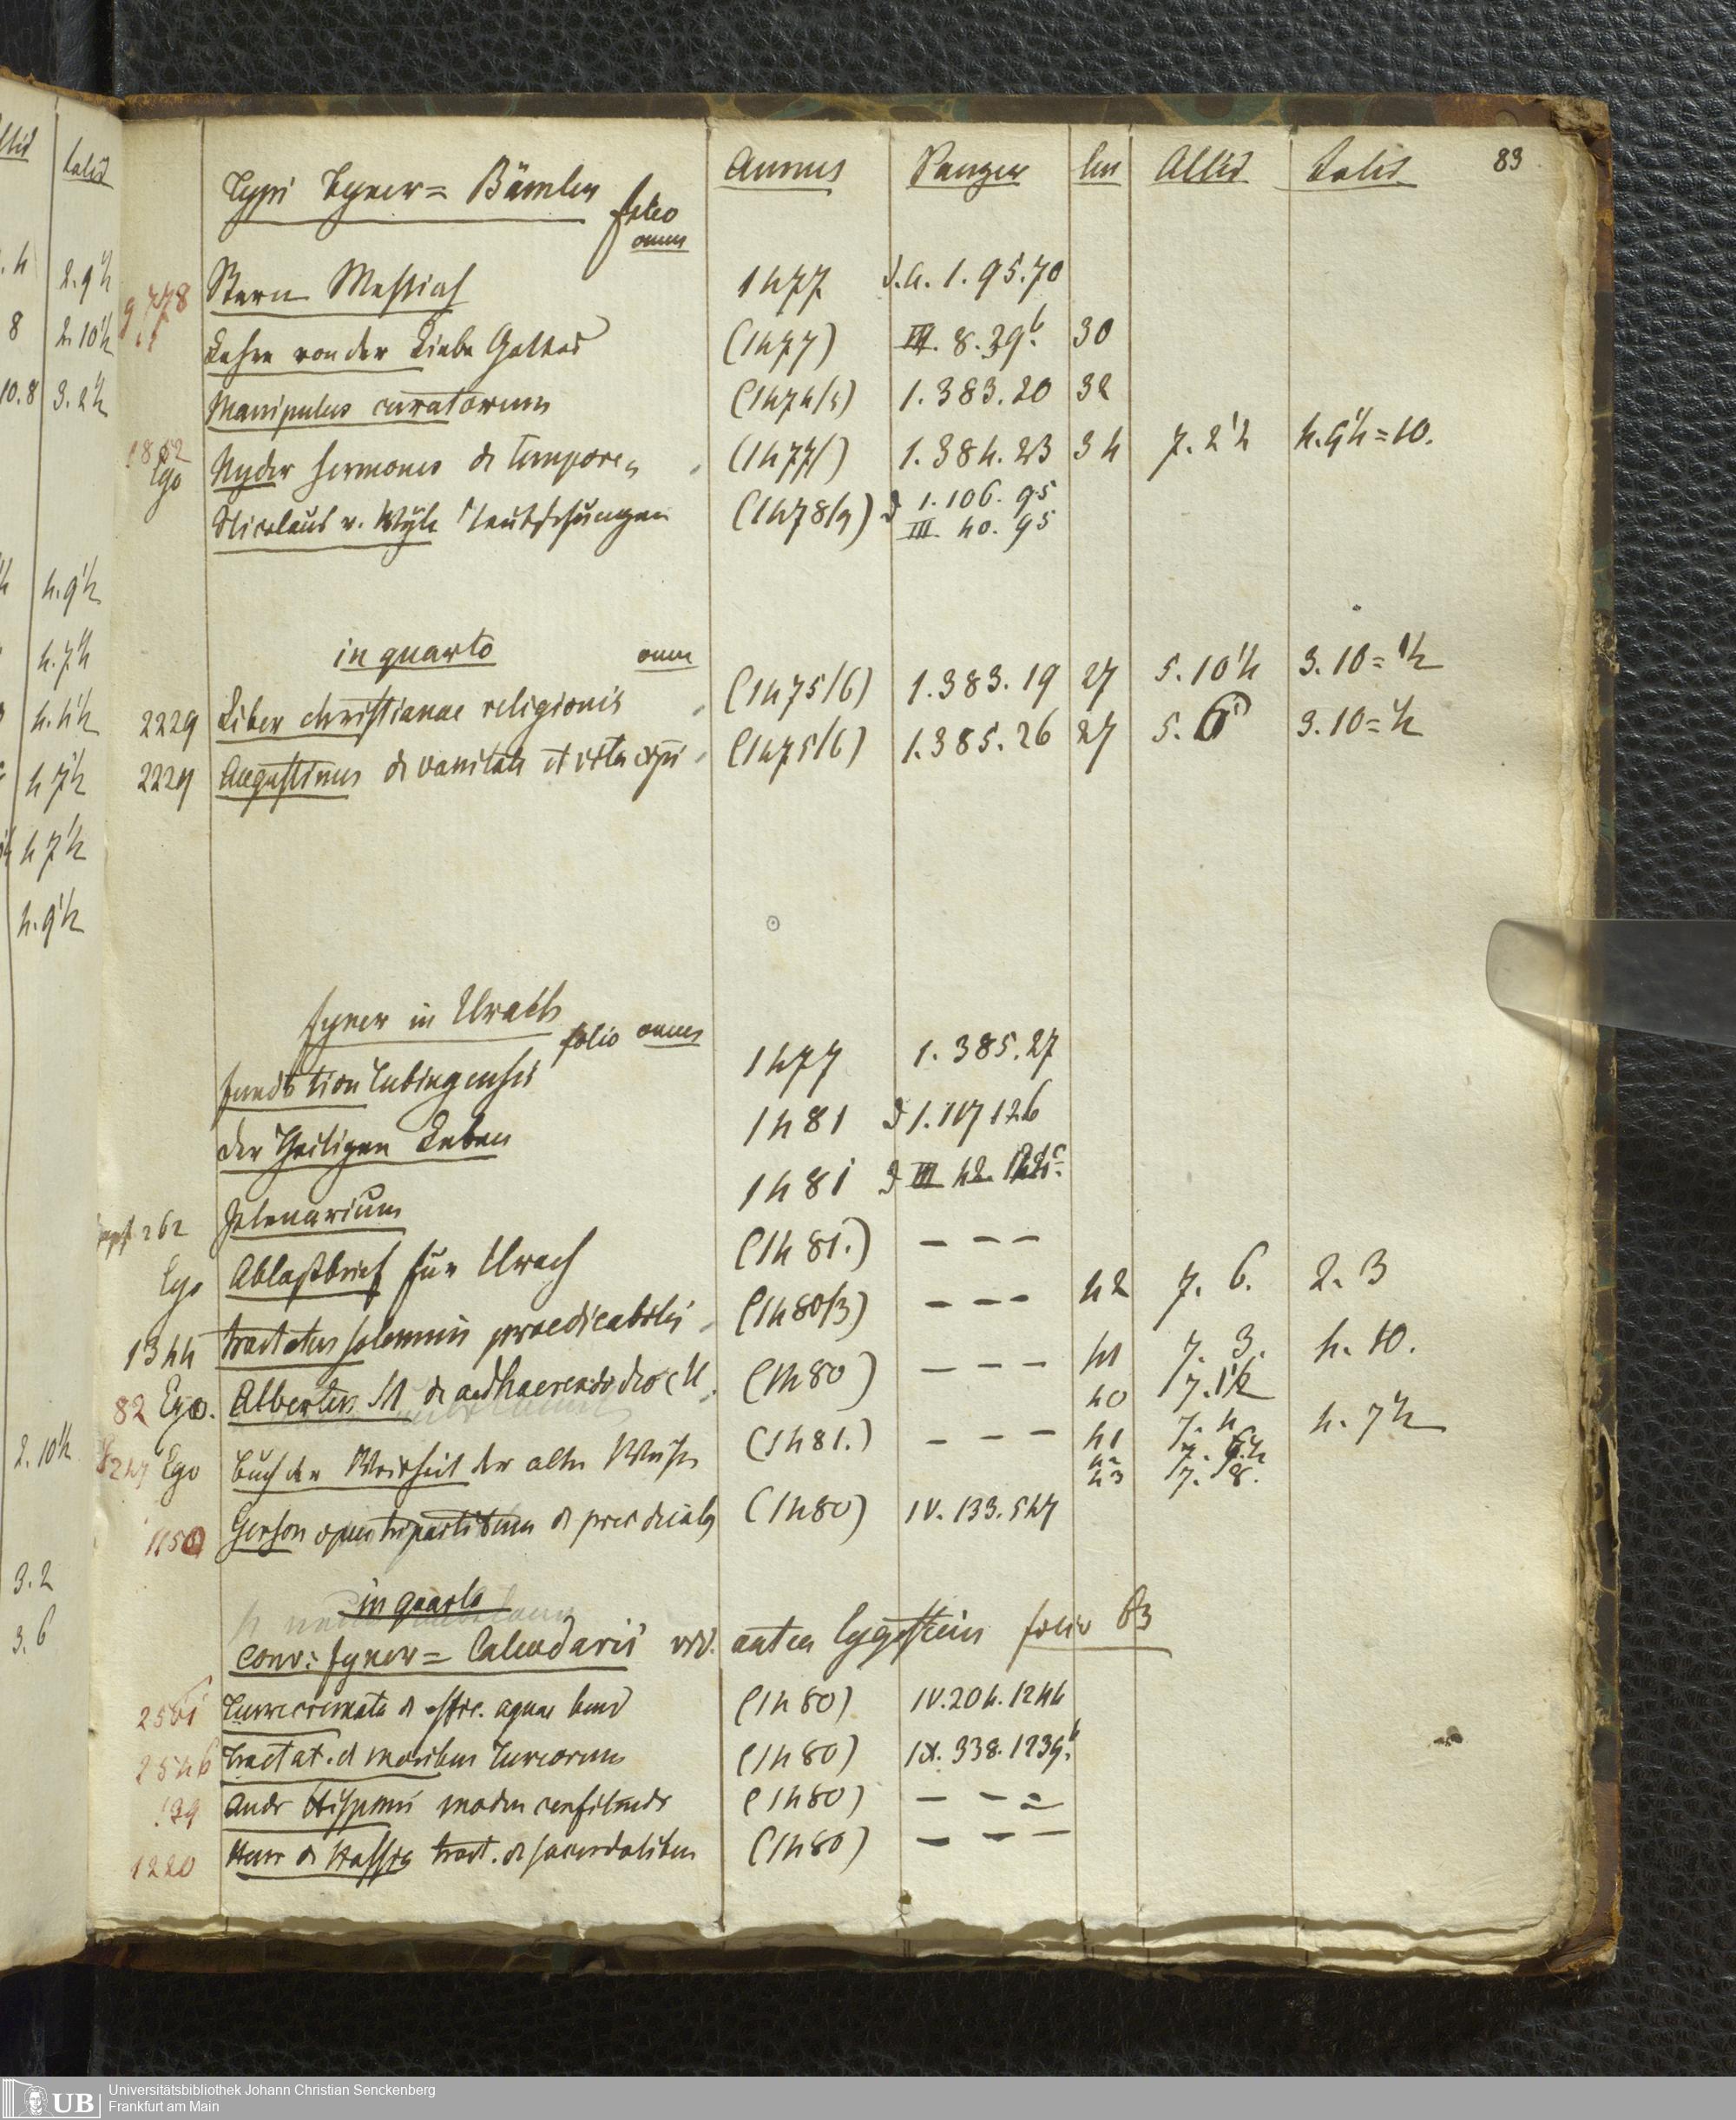 Typi Fyner = Bämler
folio
omnes
Annus
Panzer
lin
Altid
Latid
83
9778
Stern Messiah
1477
D.a. 1. 95. 70
Lehre von der Liebe Gottes
(1477)
III. 8. 39b.
30
Manipulus curatorum
(1474/5)
1. 383. 20
32
1852
Ego
Nyder sermones de tempore
(1477)
1. 384. 23
34
7. 2½
4. 9½ = 10.
Nicolaus v. Wyle Teutschungen
(1478/9)
D 1. 106. 95
III. 40. 95
in quarto
omn
2229
Liber christianae religionis
(1475/6)
1. 383. 19
27
5. 10½
3. 10 = ½
2229
Augustinus de vanitate et vita
(1475/6)
1. 385. 26
27
5. 6
3. 10 = ½
Fyner in Urach
folio omnes
Tubingensis
1477
1. 385. 27
Der Heiligen Leben
1481
D 1. 117 126
Plenarium
1481
D III 42.
262
Ego
Ablaßbrief für Urach
(1481.)
– – –
1344
Tractatus solemnis praedicabilis
(1480/3)
– – –
42
7. 6.
2. 3
82 Ego.
Albertus M de adhaerendo deo
(1480)
– – –
41
40
7. 3.
7. 1½
4. 10.
Ego
Buch der Weisheit der alten Weisen
(1481.)
– – –
41
42
43
7. 4
7. 8.
4. 7½
1150
Gerson opus tripartitum de
(1480)
IV. 133. 547
in quarto
Conr: Fyner = Calendarii vid. antea Eggestein folio 63
2561
Turrecremata de effic. aquae bened
(1480)
IV. 204. 1244
2546
Tractat. de moribus Turcorum
(1480)
IX. 338. 1239b.
129
Andr Hispani modus confitendi
(1480)
– – –
1220
Henr de Hassia tract. de sacerdotibus
(1480)
– – –
2. 9½
8
2. 10½
10. 8
3. 2½
4. 9½
4. 7½
4. 4½
4 7½
4 7½
4. 9½
2. 10½
3. 2
3. 6
UB
Universitätsbibliothek Johann Christian Senckenberg
Frankfurt am Main